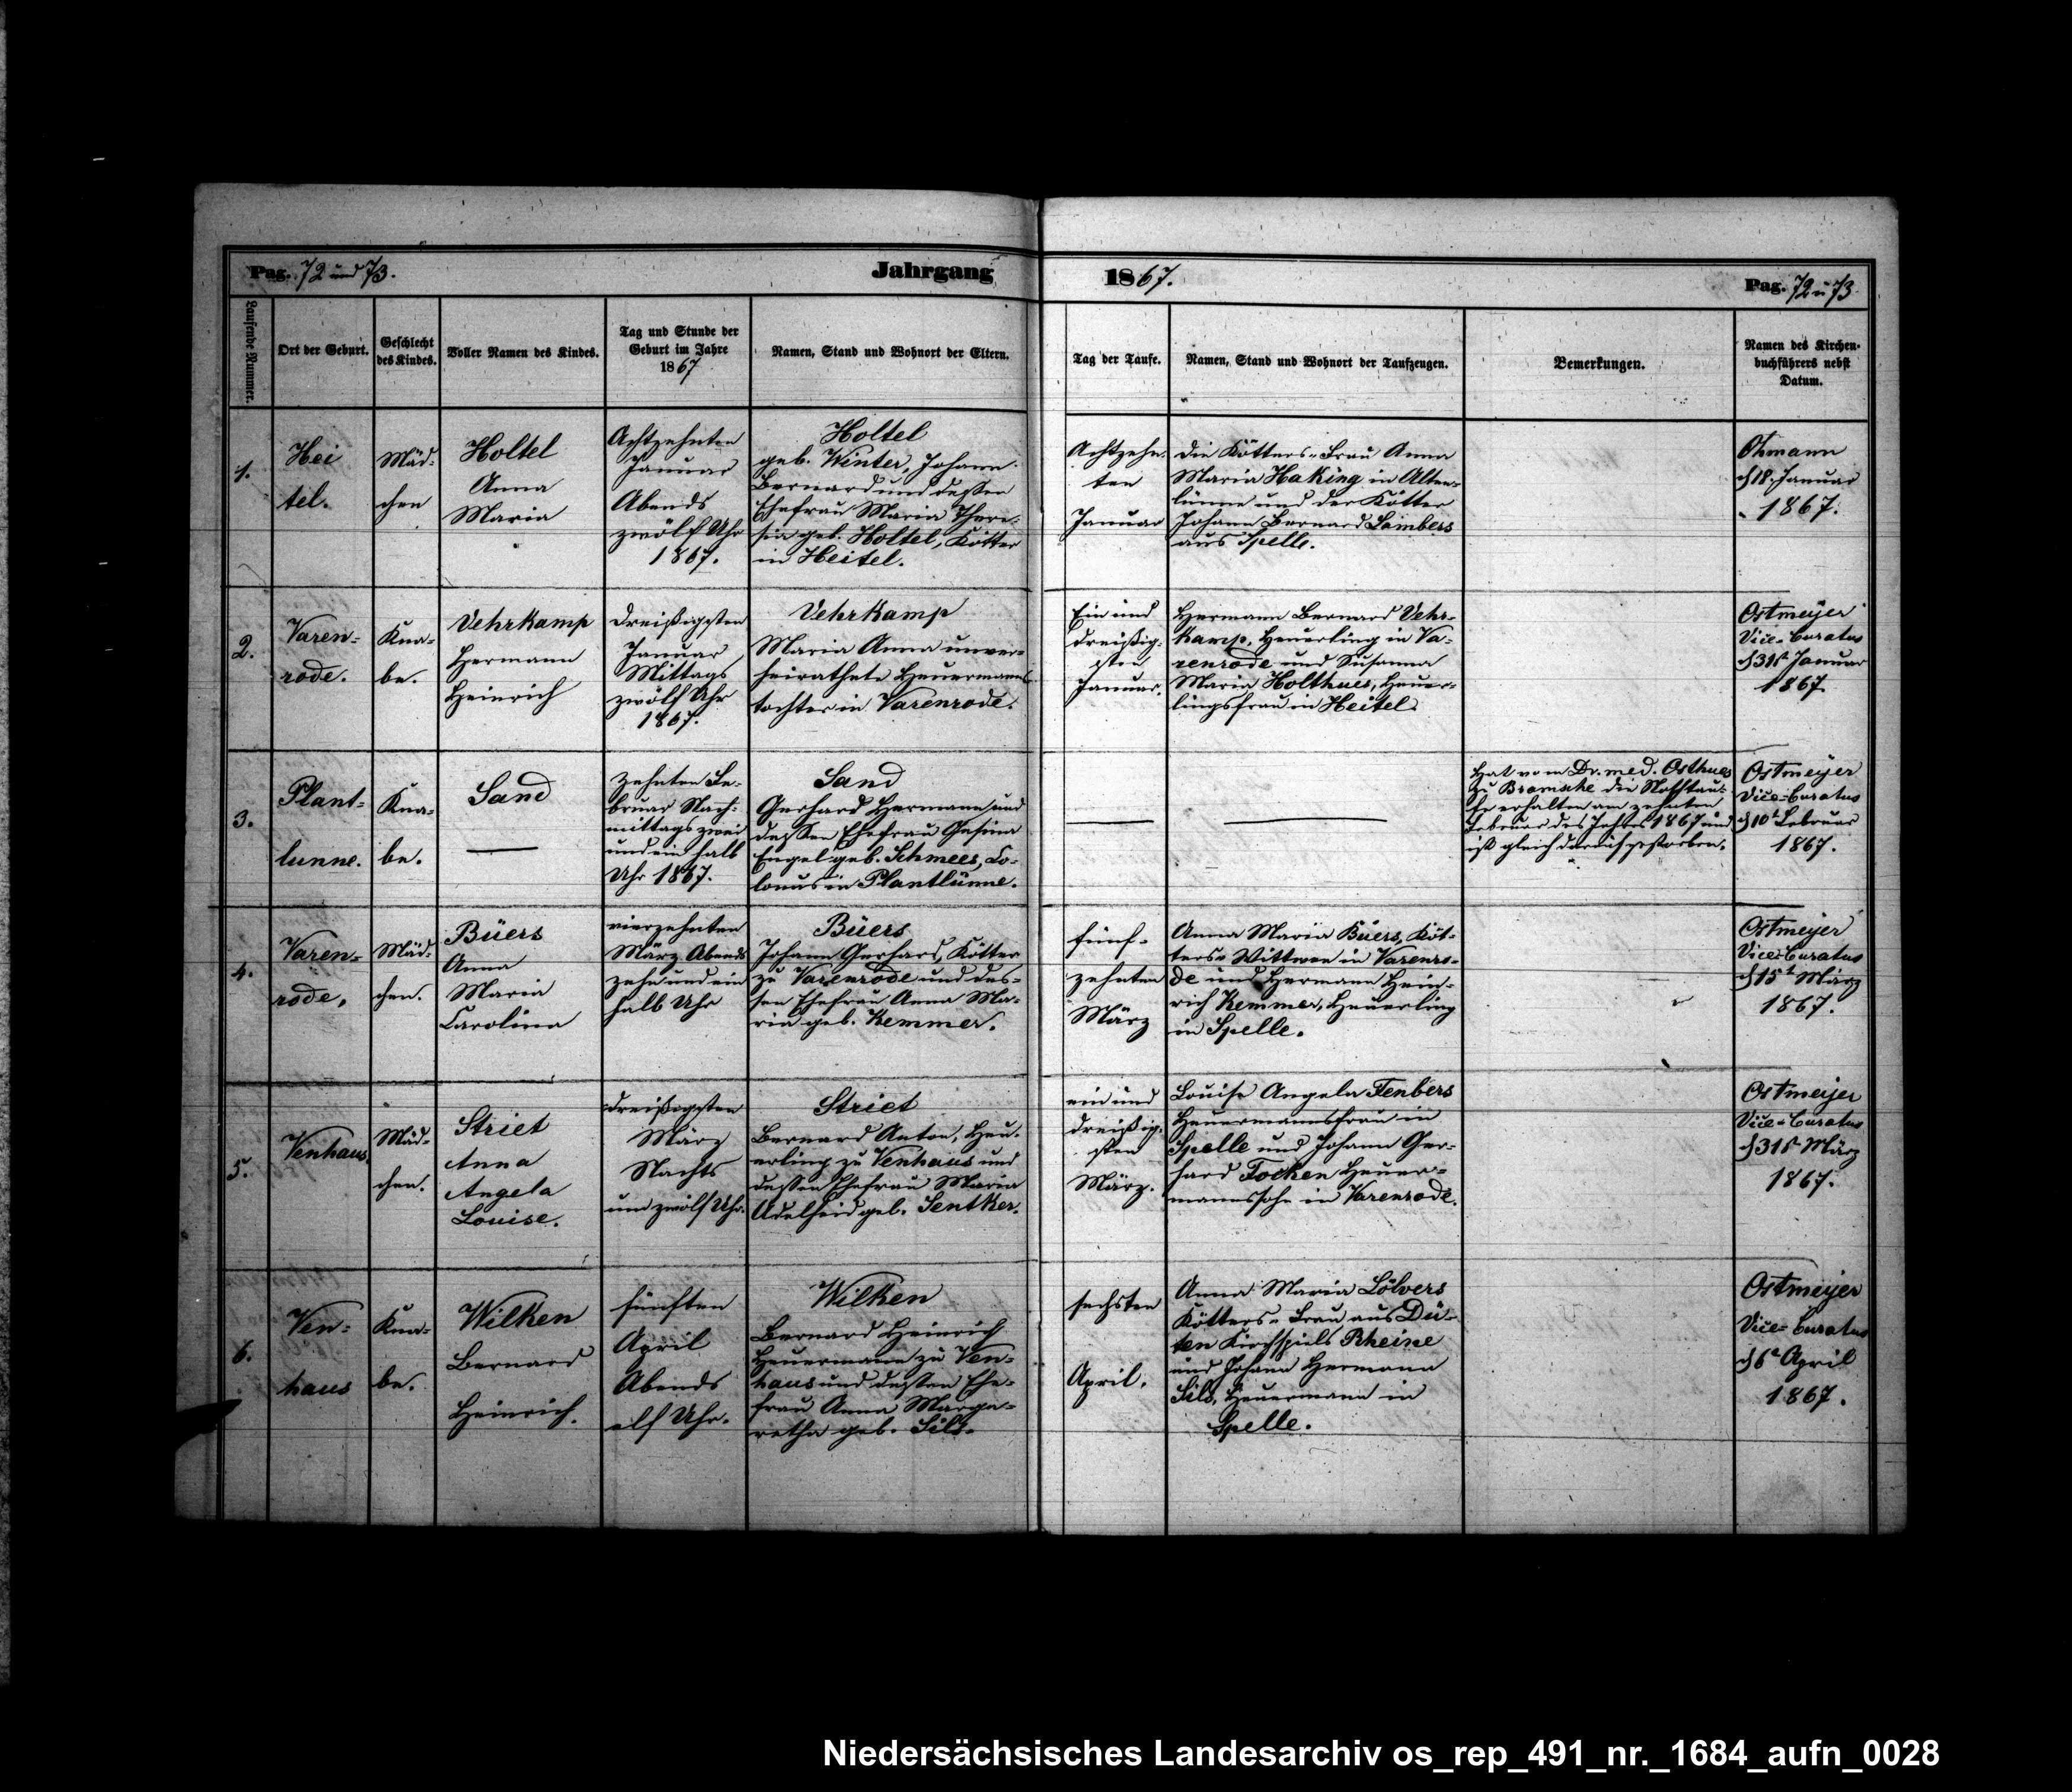 Pag. 72 und 73.
Jahrgang
1867.
Pag. 72 u 73
Laufende Nummer.
Ort der Geburt.
Geschlecht
des Kindes.
Voller Namen des Kindes.
Tag und Stunde der
Geburt im Jahre
1867
Namen, Stand und Wohnort der Eltern.
Tag der Taufe.
Namen, Stand und Wohnort der Taufzeugen.
Bemerkungen.
Namen des Kirchen-
buchführers nebst
Datum.
1.
Hei
tel.
Mäd-
chen
Holtel
Anna
Maria
Achtzehnten
Januar
Abends
zwölf Uhr
1867.
Holtel
geb. Winter, Johann
Bernard und dessen
Ehefrau Maria There-
sia geb. Holtel, Kötter
in Heitel.
Achtzehn-
ten
Januar
die Kötters-Frau Anna
Maria Haking in Alten-
lünne und der Kötter
Johann Bernard Lambers
aus Spelle.
Ohmann
d 18. Januar
1867.
2.
Varen-
rode.
Kna-
be.
Vehrkamp
Hermann
Heinrich
dreißigsten
Januar
Mittags
zwölf Uhr
1867.
Vehrkamp
Maria Anna unver-
heirathete Heuermanns-
tochter in Varenrode.
Ein und
dreißig-
sten
Januar.
Hermann Bernard Vehr-
kamp, Heuerling in Va-
renrode und Susanna
Maria Holthues, Heuer-
lingsfrau in Heitel.
Ostmeyer
Vice-Curatus
d 31t Januar
1867
3.
Plant-
lunne.
Kna-
be.
Sand
zehnten Fe-
bruar Nach-
mittags zwei
und ein halb
Uhr 1867.
Sand
Gerhard Hermann und
dessen Ehefrau Gesina
Engel geb. Schmees, Co-
lonus in Plantlünne.
Hat vom Dr. med. Osthues
zu Bramsche die Nothtau-
fe erhalten am zehnten
Februar des Jahres 1867 und
ist gleich darauf gestorben.
Ostmeyer
Vice-Curatus
d 10t Februar
1867.
4.
Varen-
rode.
Mäd-
chen.
Büers
Anna
Maria
Carolina
vierzehnten
März Abends
zehn und ein
halb Uhr
Büers
Johann Gerhard, Kötter
zu Varenrode und des-
sen Ehefrau Anna Ma-
ria geb. Kemmer.
fünf-
zehnten
März
Anna Maria Büers, Köt-
ters-Wittwe in Varenro-
de und Hermann Hein-
rich Kemmer, Heuerling
in Spelle.
Ostmeyer
Vice-Curatus
d 15t März
1867.
5.
Venhaus.
Mäd-
chen.
Striet
Anna
Angela
Louise.
dreißigsten
März
Nachts
um zwölf Uhr.
Striet
Bernard Anton, Heu-
erling zu Venhaus und
dessen Ehefrau Maria
Adelheid geb. Sentker.
ein und
dreißig-
sten
März.
Louise Angela Tenbers
Heuermannsfrau in
Spelle und Johann Ger-
hard Focken Heuer-
mannssohn in Varenrode.
Ostmeyer
Vice-Curatus
d 31t März
1867.
6.
Ven-
haus
Kna-
be.
Wilken
Bernard
Heinrich.
fünften
April
Abends
elf Uhr.
Wilken
Bernard Heinrich
Heuermann zu Ven-
haus und dessen Ehe-
frau Anna Marga-
retha geb. Sils.
sechsten
April.
Anna Maria Lölvers
Kötters-Frau aus Dü-
ten Kirchspiels Rheine
und Johann Hermann
Sils, Heuermann in
Spelle.
Ostmeyer
Vice-Curatus
d 6t April
1867.
Niedersächsisches Landesarchiv os_rep_491_nr._1684_aufn_0028